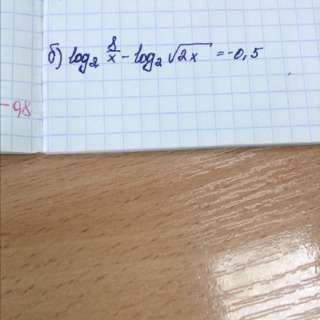 б) log₂ 8/x - log₂ √2x = -0,5
- 98